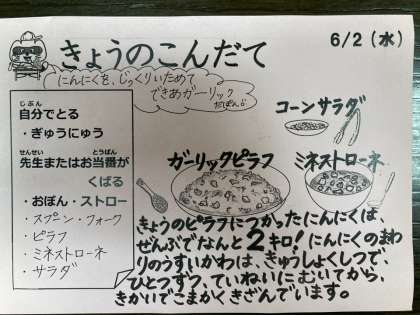 きょうのこんだて
6/2(水)
にんにくを、じっくりいためて
できあガーリック
だぽん♪
じぶん
自分でとる
・ぎゅうにゅう
せんせい とうばん
先生またはお当番が
くばる
・おぼん・ストロー
・スプーン・フォーク
・ピラフ
・ミネストローネ
・サラダ
コーンサラダ
ガーリックピラフ
ミネストローネ
きょうのピラフにつかったにんにくは、
ぜんぶでなんと2キロ!にんにくのまわ
りのうすいかわは、きゅうしょくしつで、
ひとつずつ、ていねいにむいてから、
きかいでこまかくきざんでいます。